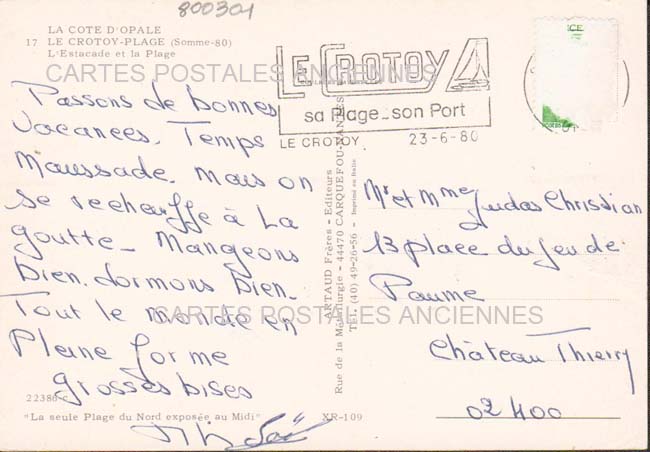 800301
LA COTE D'OPALE
17 LE CROTOY-PLAGE (Somme-80)
L'Estacade et la Plage
CARTES POSTALES ANCIENNES
LE CROTOY
sa Plage_son Port
LE CROTOY 23-6-80
Passons de bonnes
vacances. Temps
Maussade. mais on
se rechauffe à La
goutte_ Mangeons
bien. dormons bien_
Tout le monde en
Pleine forme
grosses bises
22386-c
"La seule Plage du Nord exposée au Midi"
XR-109
ARTAUD Frères - Editeurs
Rue de la Métallurgie - 44470 CARQUEFOU-NANTES
Tél. (40) 49-26-56 - Imprimé en Italie
Mr et Mme Judas Christian
13 place du jeu de
Paume
CARTES POSTALES ANCIENNES
Château Thierry
02400